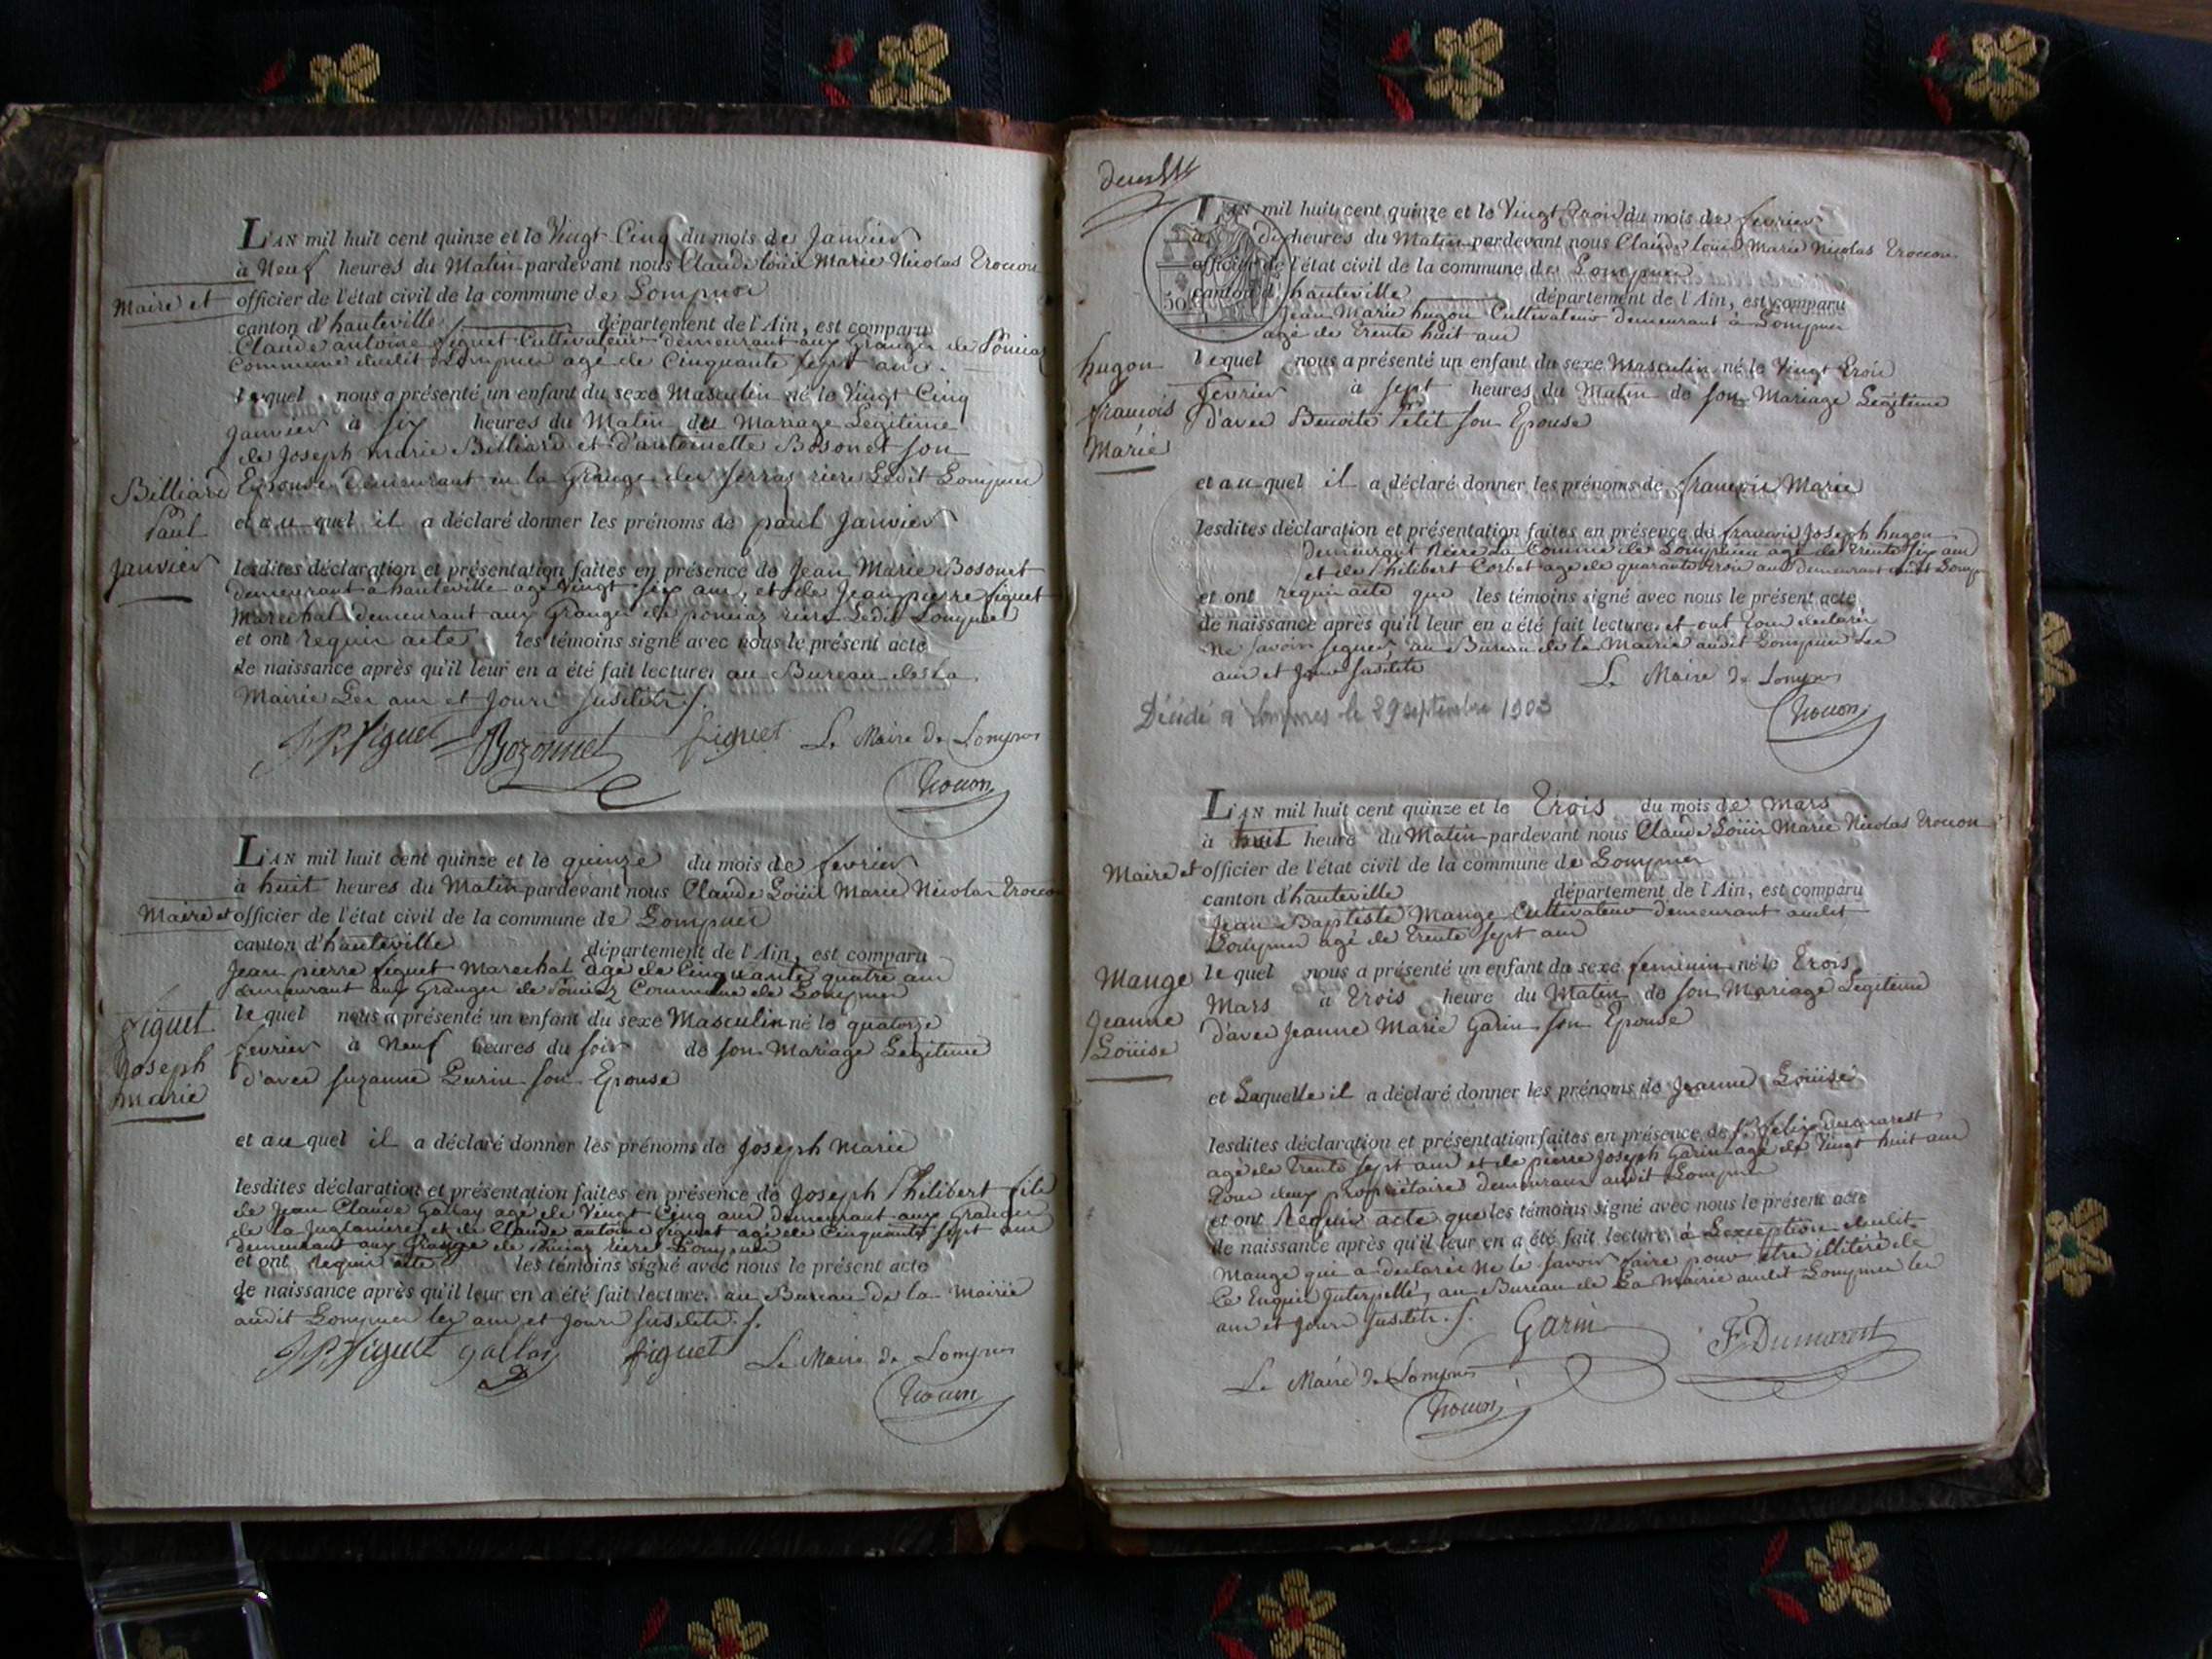 L'AN mil huit cent quinze et le Vingt Cinq du mois de Janvier
à Neuf heures du Matin pardevant nous Claude Loüis Marie Nicolas Trocon
Maire et officier de l'état civil de la commune de Lompnes
canton d'hauteville département de l'Ain, est comparu
Claude antoine figuet Cultivateur demeurant aux Granges de
Commune dudit Lompnes agé de Cinquante sept ans
lequel nous a présenté un enfant du sexe Masculin né le Vingt Cinq
Janvier à six heures du Matin du Mariage Legitime
de Joseph Marie Billiard et d'antoinette Bosonet son
Billiard Epouse demeurant en la Grange des serras riere Ledit Lompnes
Paul et au quel il a déclaré donner les prénoms de paul Janvier
Janvier lesdites déclaration et présentation faites en présence de Jean Marie Bosonet
demeurant a hauteville agé Vingt six ans, et de Jean pierre figuet
Marechal demeurant aux Granges de poniaz riere Ledit Lompnes
et ont requis acte les témoins signé avec nous le présent acte
de naissance après qu'il leur en a été fait lecture, au Bureau de la
Mairie Les an et Jours susdits ./.
J P figuet Bozonnet figuet Le Maire de Lompnes
Trocon
L'AN mil huit cent quinze et le quinze du mois de fevrier
à huit heures du Matin pardevant nous Claude Loüis Marie Nicolas Trocon
Maire et officier de l'état civil de la commune de Lompnes
canton d'hauteville département de l'Ain, est comparu
Jean pierre figuet Marechal agé de Cinquante quatre ans
demeurant aux Granges de Poniaz Commune de Lompnes
figuet lequel nous a présenté un enfant du sexe Masculin né le quatorze
Joseph fevrier à Neuf heures du soir de son Mariage Legitime
marie d'avec suzanne Lurin son Epouse
et au quel il a déclaré donner les prénoms de Joseph Marie
lesdites déclaration et présentation faites en présence de Joseph Philibert fils
de Jean Claude Gallay agé de Vingt Cinq ans demeurant aux Granges
de la et de Claude antoine figuet agé de Cinquante sept ans
demeurant aux Granges de Poniaz riere Lompnes
et ont requis acte les témoins signé avec nous le présent acte
de naissance après qu'il leur en a été fait lecture, au Bureau de la Mairie
audit Lompnes les an et Jours susdits ./.
J P figuet gallay figuet Le Maire de Lompnes
Trocon
L'AN mil huit cent quinze et le Vingt Trois du mois de fevrier
à heures du Matin pardevant nous Claude Loüis Marie Nicolas Trocon
officier de l'état civil de la commune de Lompnes
50 canton d'hauteville département de l'Ain, est comparu
Jean Marie hugon Cultivateur demeurant à Lompnes
agé de Trente huit ans
hugon lequel nous a présenté un enfant du sexe Masculin né le Vingt Trois
françois fevrier à sept heures du Matin de son Mariage Legitime
Marie d'avec Benoite Petit son Epouse
et au quel il a déclaré donner les prénoms de françois Marie
lesdites déclaration et présentation faites en présence de francois Joseph hugon
demeurant riere La Commune de Lompnes agé de Trente six ans
et de Philibert Corbet agé de quarante Trois ans demeurant audit Lompnes
et ont requis acte que les témoins signé avec nous le présent acte
de naissance après qu'il leur en a été fait lecture, et ont Tous declaré
Ne savoir signer, au Bureau de la Mairie audit Lompnes Les
an et Jour susdits
Le Maire de Lompnes
Décédé à Lompnes le 29 septembre 1903
Trocon
L'AN mil huit cent quinze et le Trois du mois de Mars
à huit heure du Matin pardevant nous Claude Loüis Marie Nicolas Trocon
Maire et officier de l'état civil de la commune de Lompnes
canton d'hauteville département de l'Ain, est comparu
Jean Baptiste Mange Cultivateur demeurant audit
Lompnes agé de Trente sept ans
Mange lequel nous a présenté un enfant du sexe feminin né le Trois
Jeanne Mars à Trois heure du Matin de son Mariage Legitime
Loüise d'avec Jeanne Marie Garin son Epouse
et Laquelle il a déclaré donner les prénoms de Jeanne Loüise
lesdites déclaration et présentation faites en présence de felix dumarest
agé de Trente sept ans et de pierre Joseph Garin agé de Vingt huit ans
Tous deux propriétaires demeurans audit Lompnes
et ont Requis acte que les témoins signé avec nous le présent acte
de naissance après qu'il leur en a été fait lecture, à Lexception dudit
Mange qui a declaré Ne le savoir faire pour etre illitéré de
Ce Enquis Interpellé, au Bureau de La Mairie audit Lompnes les
an et Jours susdits ./. Garin F. Dumarest
Le Maire de Lompnes
Trocon